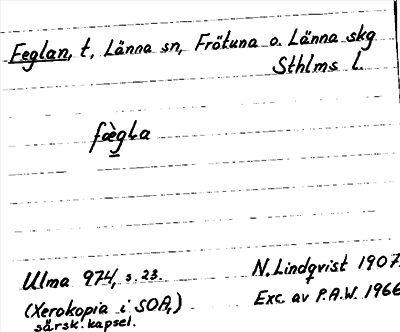 Feglan, t, Länna sn, Frötuna o. Länna skg
Sthlms l.
fæ̀gɩa
Ulma 974, s. 23.
N. Lindqvist 1907.
(Xerokopia i SOA,)
särsk. kapsel.
Exc. av P.A.W. 1966